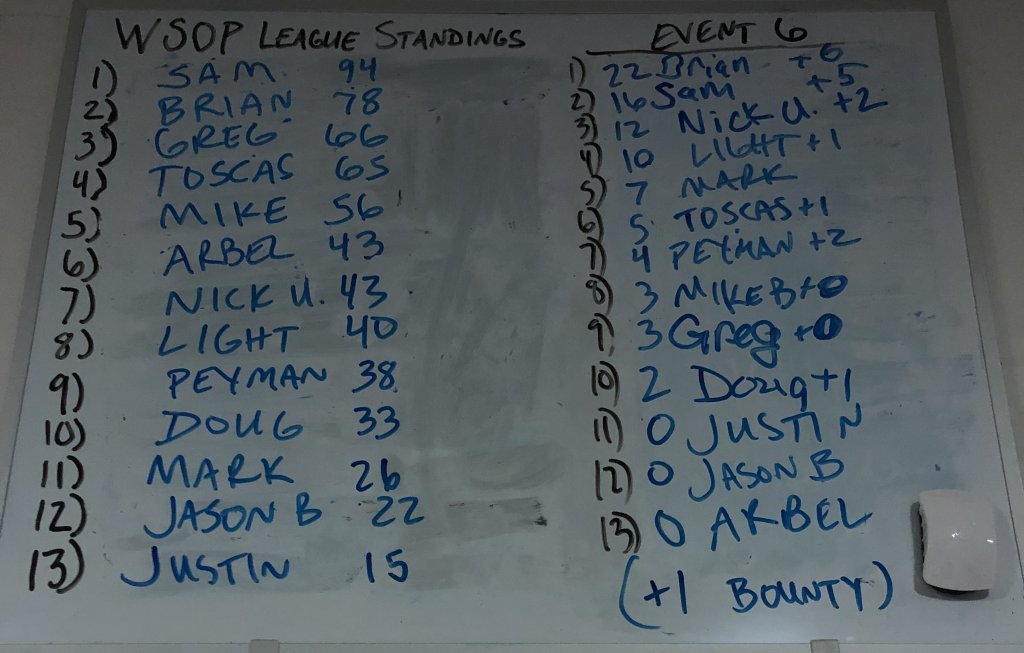 WSOP LEAGUE STANDINGS
1) SAM 94
2) BRIAN 78
3) GREG 66
4) TOSCAS 65
5) MIKE 56
6) ARBEL 43
7) NICK U. 43
8) LIGHT 40
9) PEYMAN 38
10) DOUG 33
11) MARK 26
12) JASON B 22
13) JUSTIN 15
EVENT 6
1) 22 Brian +6
2) 16 Sam +5
3) 12 NICK U. +2
4) 10 LIGHT +1
5) 7 MARK
6) 5 TOSCAS +1
7) 4 PEYMAN +2
8) 3 MIKE B +0
9) 3 Greg +0
10) 2 Doug +1
11) 0 JUSTIN
12) 0 JASON B
13) 0 ARBEL
(+1 BOUNTY)